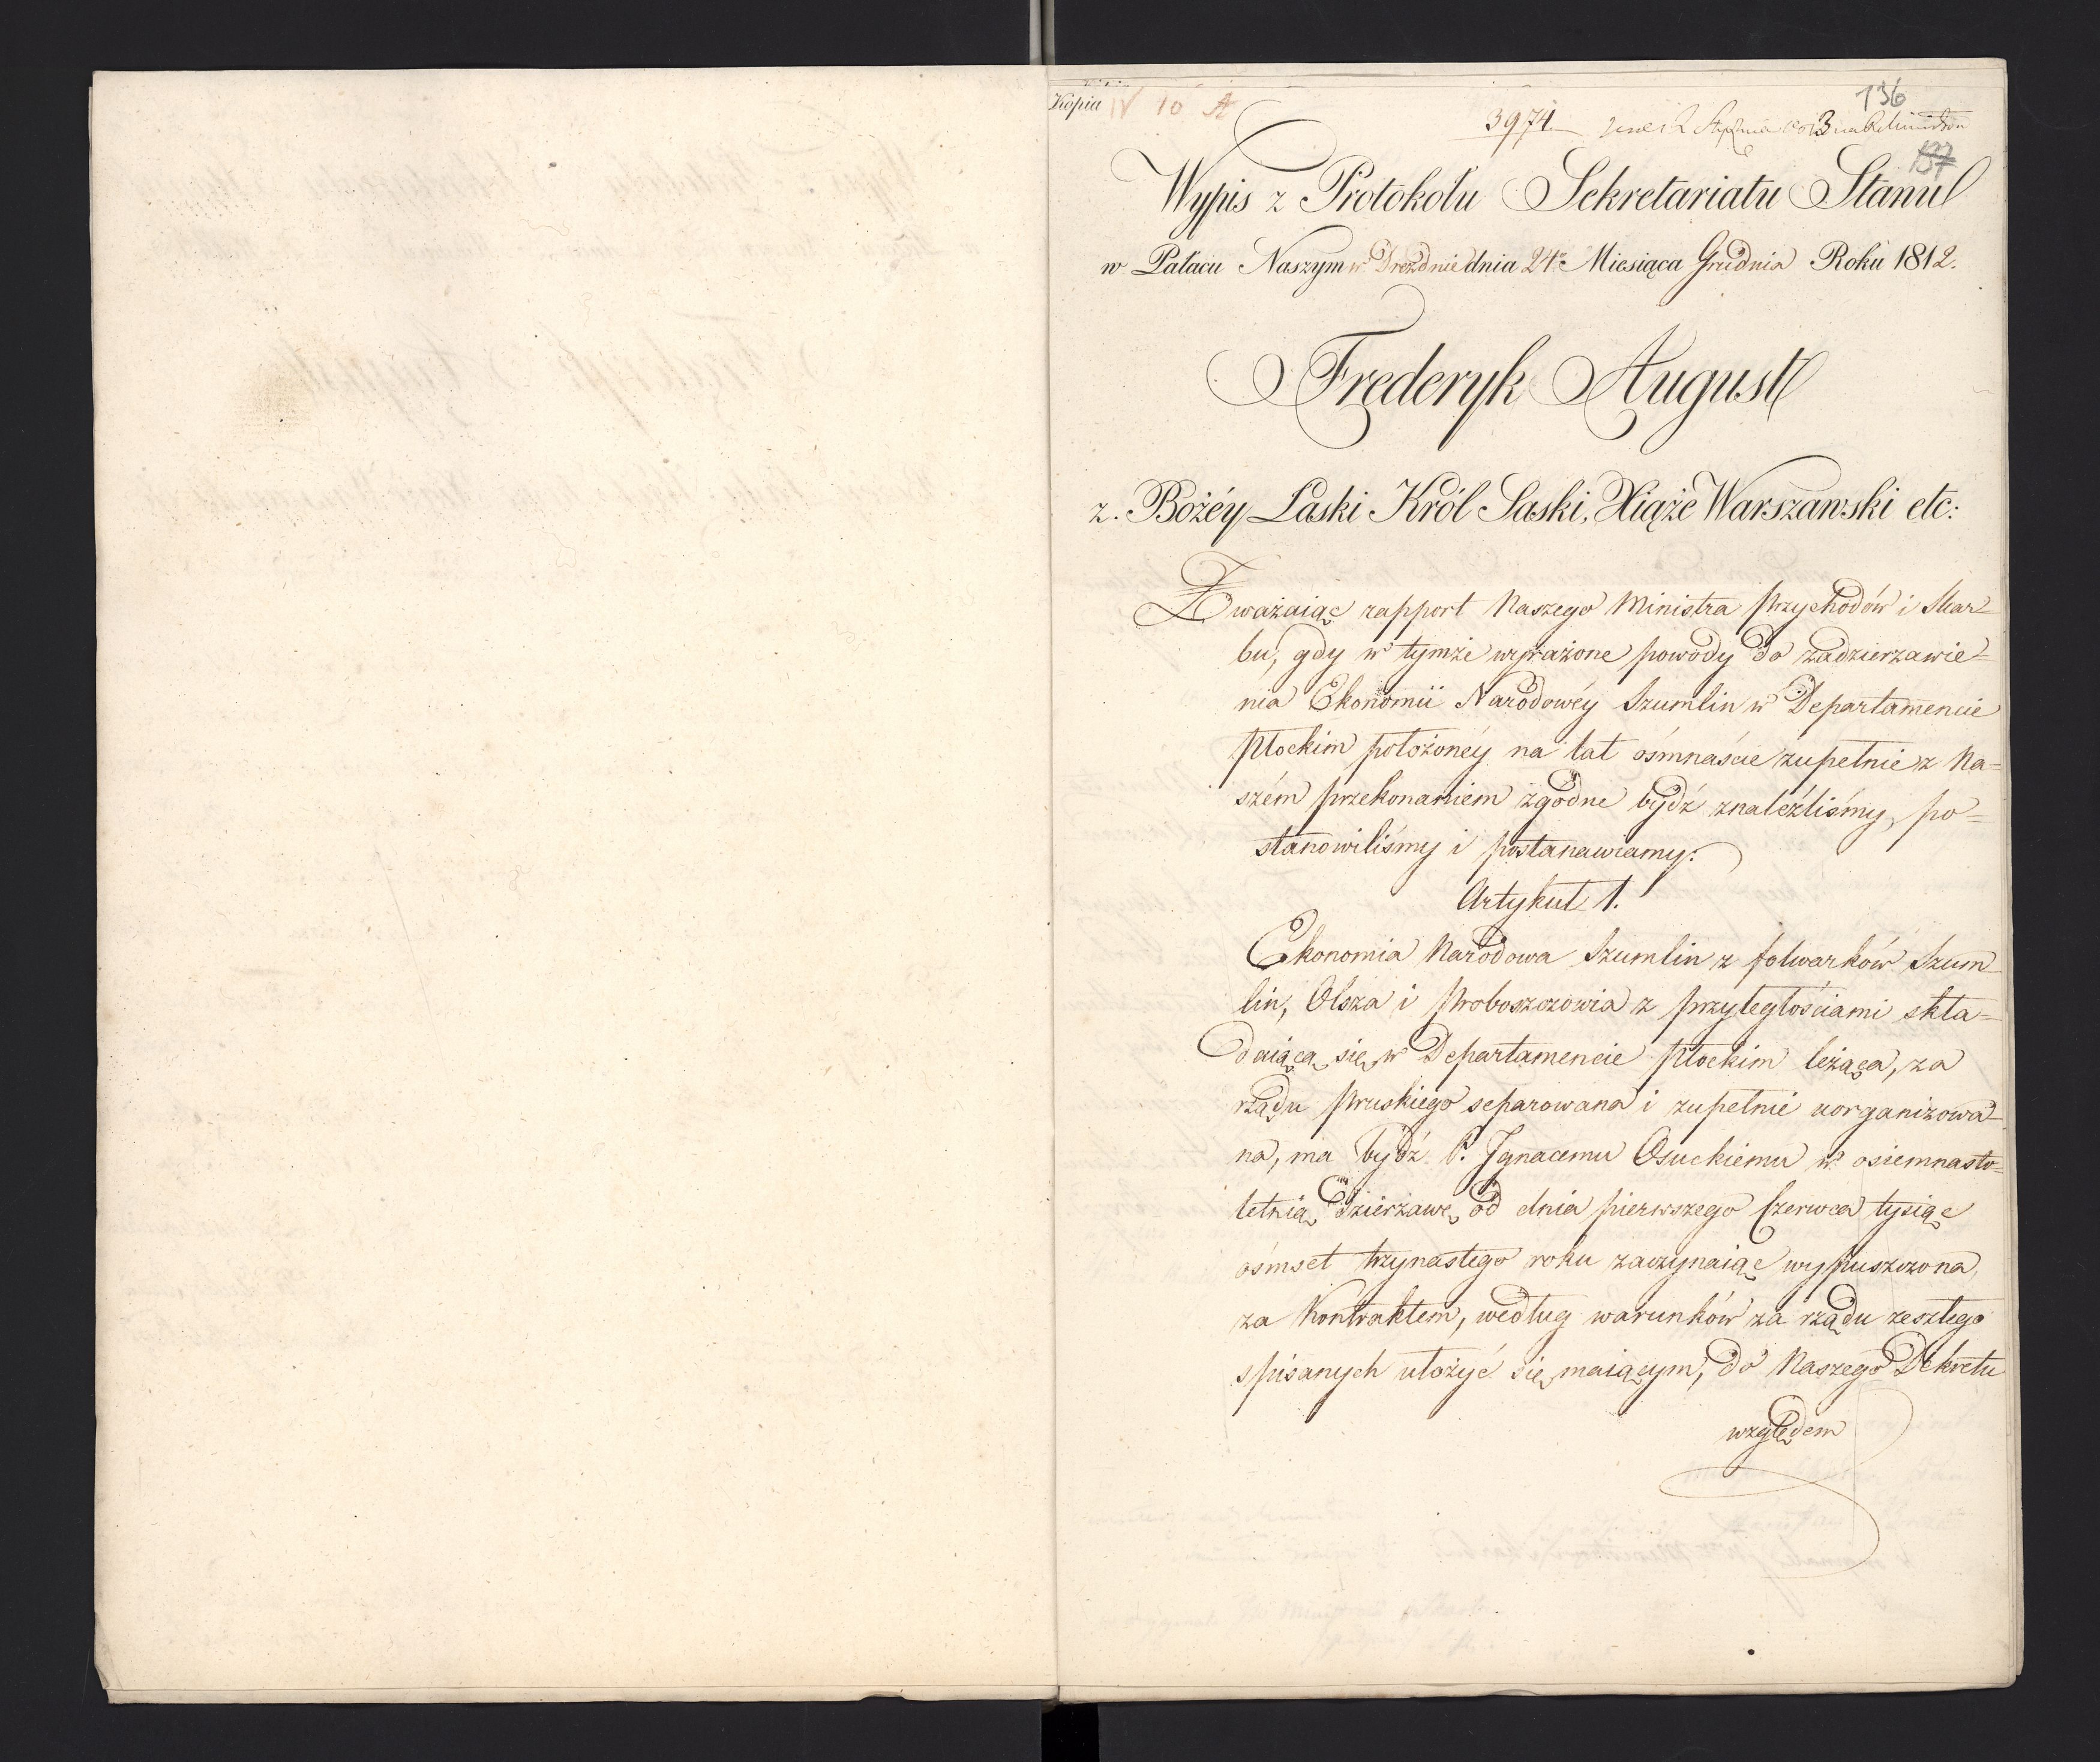 Kopia IV 10 A
136
3974
137
Wypis z Protokołu Sekretariatu Stanu
w Pałacu Naszym w Dreźdnie dnia 24. Miesiąca Grudnia Roku 1812.
Frederyk August
z. Bożéy Łaski Król Saski, Xiąże Warszawski etc:
Zważaiąc rapport Naszego Ministra Przychodów i Skar=
bu, gdy w tymże wyrażone powody do zadzierzawie=
nia Ekonomii Narodowéy Szumlin w Departamencie
Płockim położonéy na lat ośmnaście zupełnie z Na=
szém przekonaniem zgodne bydź znaleźliśmy, po=
stanowiliśmy i postanawiamy:
Artykuł 1.
Ekonomia Narodowa Szumlin z folwarków Szum
lin, Olsza i Proboszczowia z przyległościami skła=
daiąca się w Departamencie Płockim leżąca, za
rządu Pruskiego separowana i zupełnie uorganizowa=
na, ma bydź P. Ignacemu Osuckiemu w osiemnasto=
letnią dzierżawę od dnia pierwszego Czerwca tysiąc
ośmset trzynastego roku zaczynaiąc wypuszczona,
za Kontraktem, według warunków za rządu zeszłego
spisanych ułożyć się maiącym, do Naszego Dekretu
względem